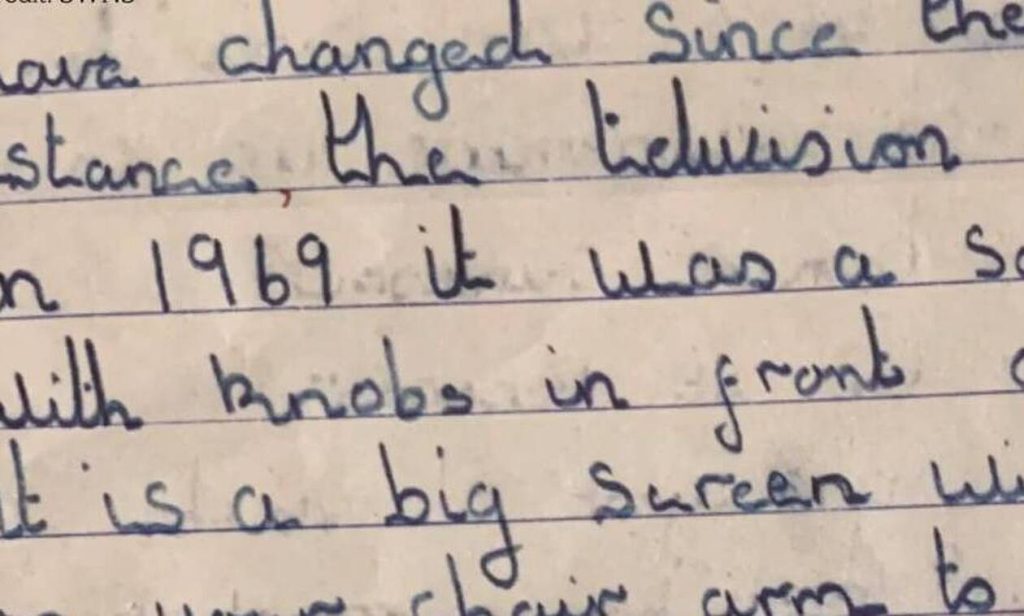 have changed since the
stance, the television
n 1969 it was a
with knobs in front
it is a big screen
your chair arm to